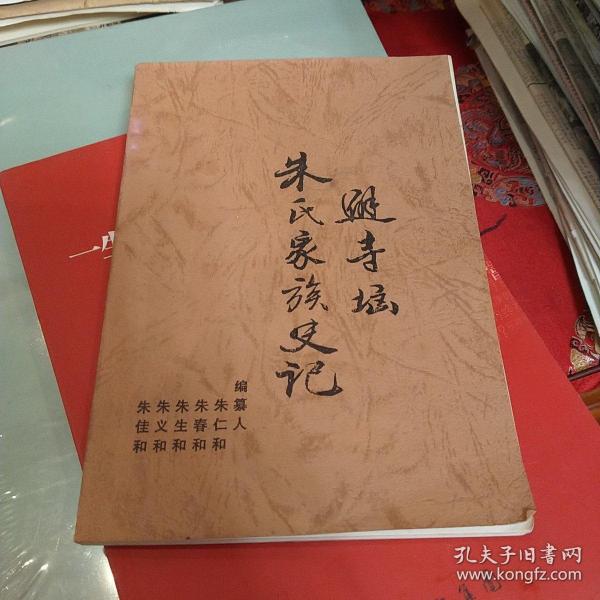 寺
朱氏家族史记
编纂人
朱仁和
朱春和
朱生和
朱义和
朱佳和
一
孔夫子旧书网
www.kongfz.com